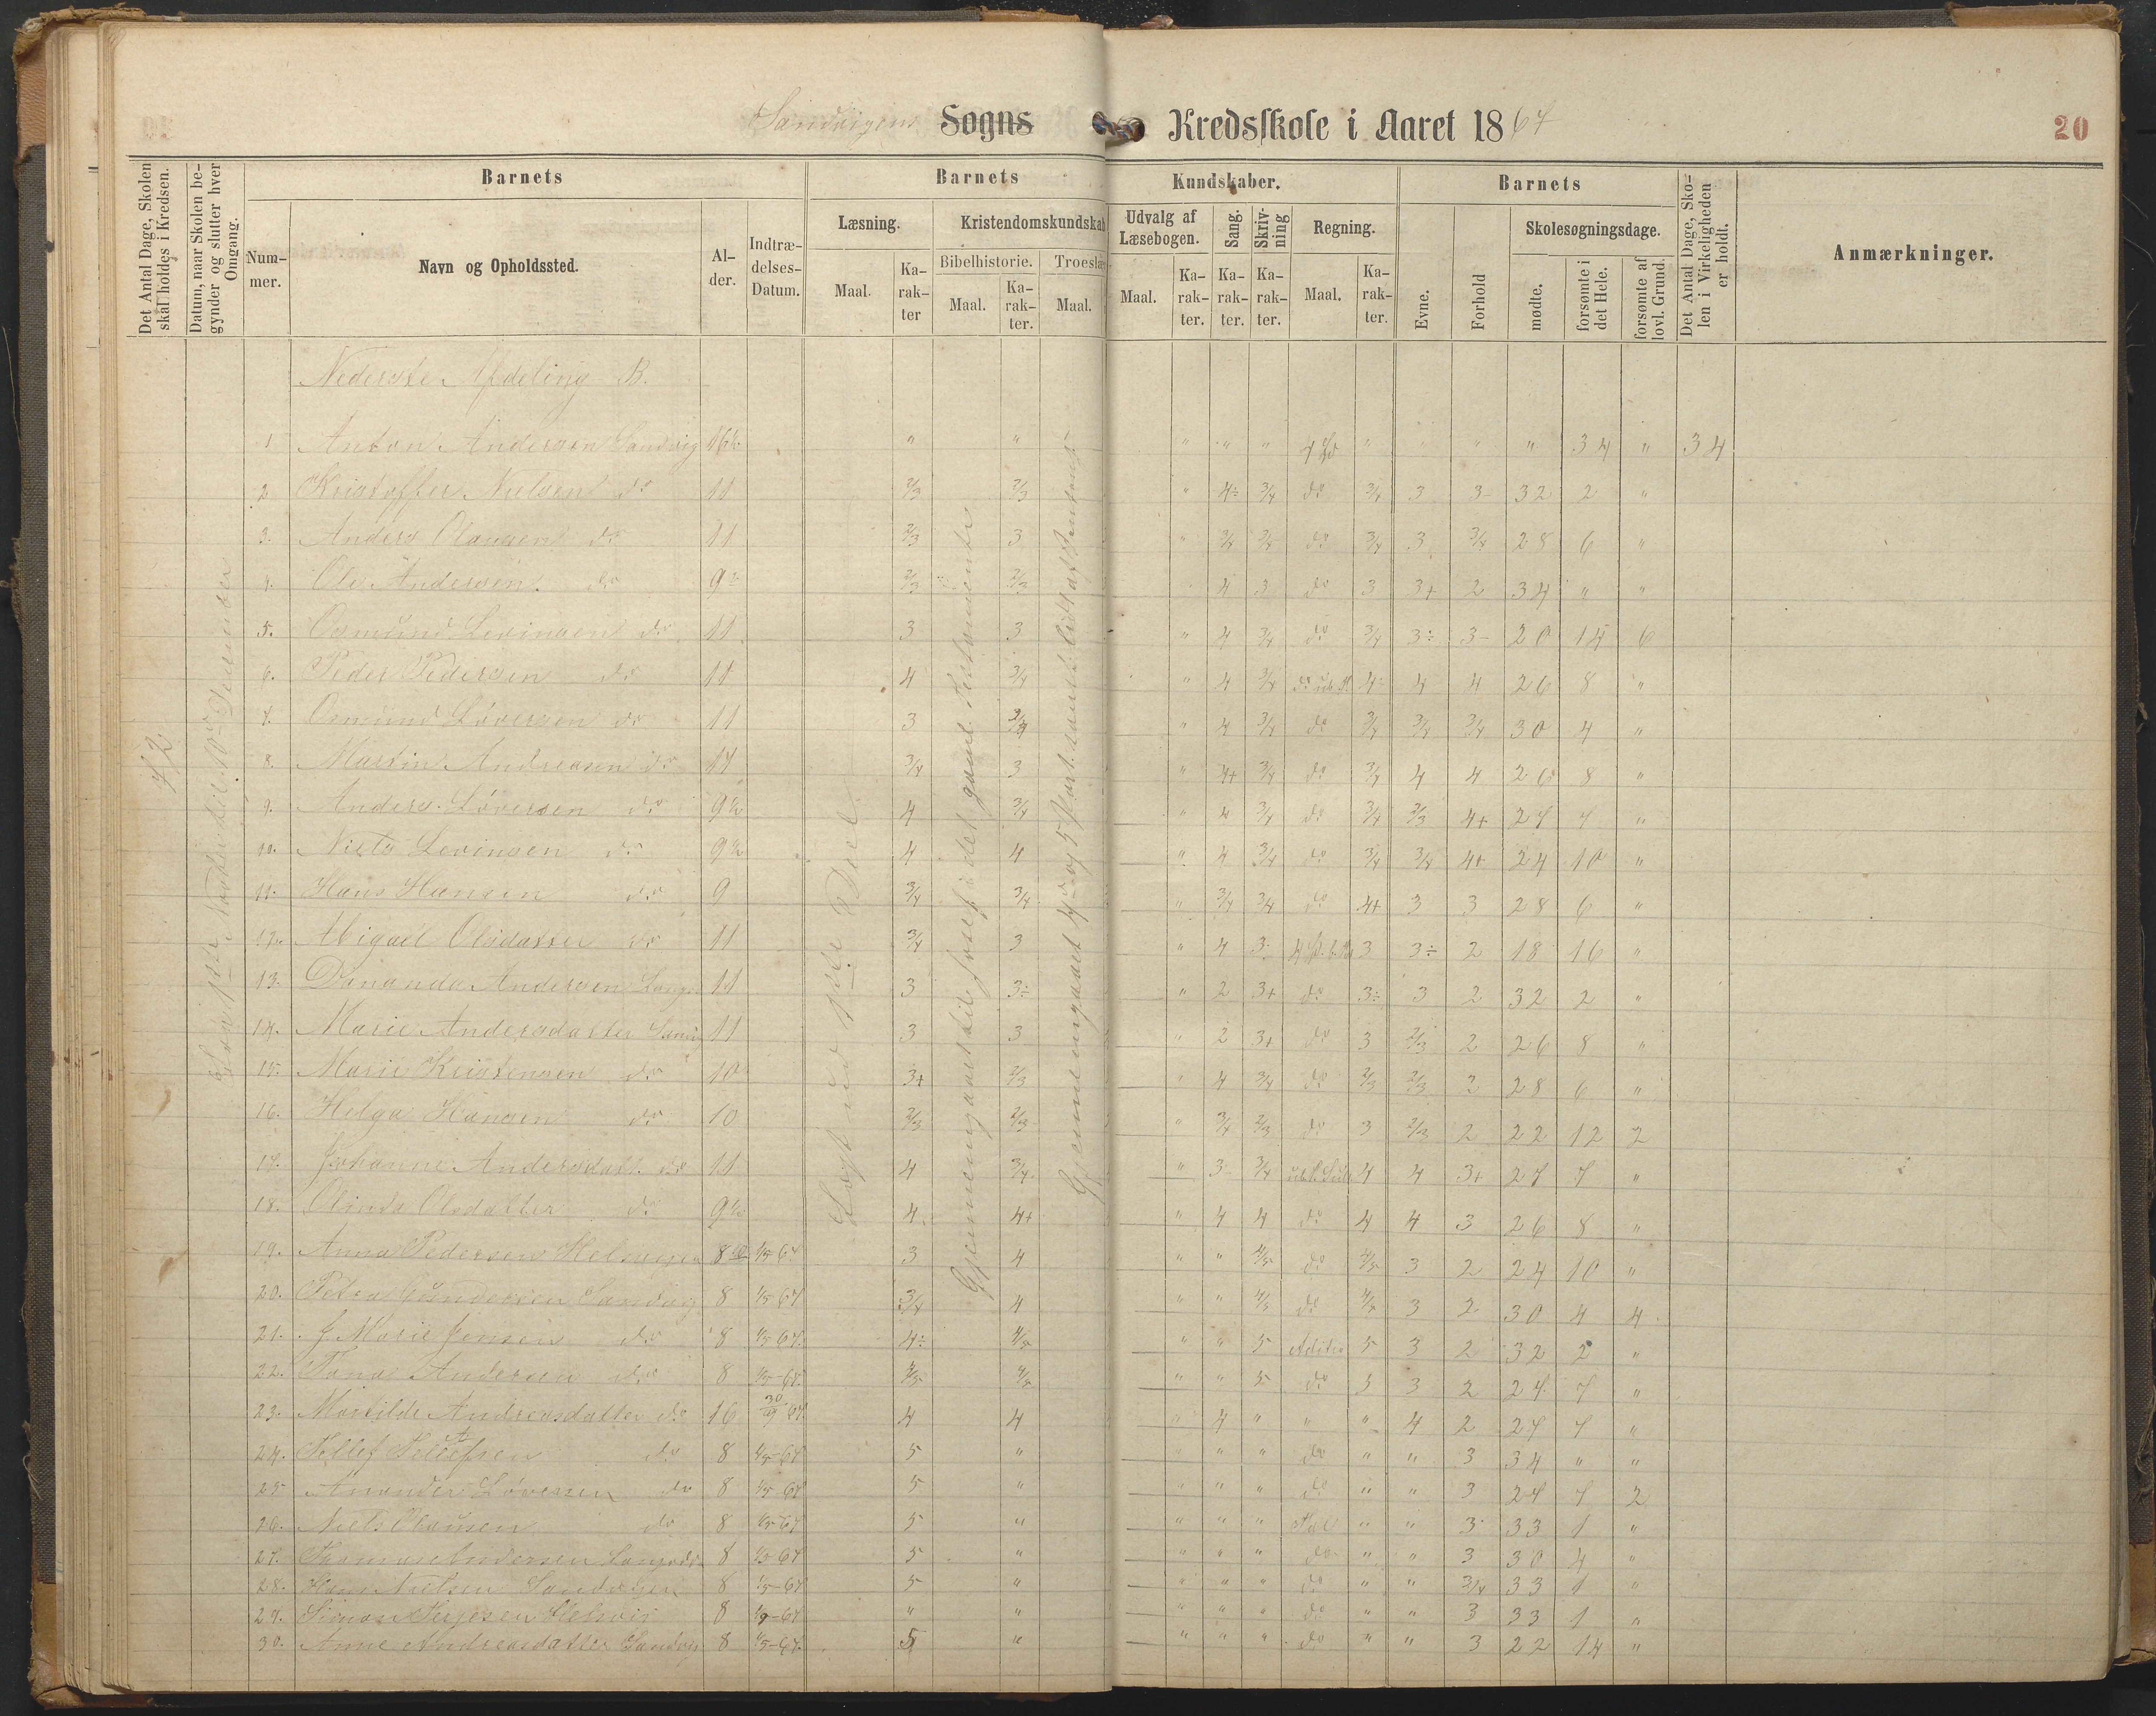 Sandvigens Sogns Kredsskole i Aaret 1867
20
Det Antal Dage, Skolen skal holdes i Kredsen.
Datum, naar Skolen begynder og slutter hver Omgang.
Barnets
Barnets
Kundskaber.
Barnets
Det Antal Dage, Skolen i Virkeligheden er holdt.
Anmærkninger.
Nummer.
Navn og Opholdssted.
Alder.
Indtrædelses-Datum.
Læsning.
Kristendomskundskab
Udvalg af Læsebogen.
Sang.
Skrivning
Regning.
Evne.
Forhold
Skolesøgningsdage.
Maal.
Karakter
Bibelhistorie.
Troeslæ
Maal.
Karakter.
Maal.
Maal.
Karakter.
Karakter.
Karakter.
Maal.
Karakter.
mødte.
forsømte i det Hele.
forsømte af lovl. Grund.
Nederste Afdeling B.
72
Læst ud 1ste Deel
1 Anton Andersen Sandvig " " " " " " " " 34 " 34
2 Kristoffer Nielsen do 11 2/3 2/3 " 4÷ 3/4 do 3/4 3 3- 32 2 "
3. Anders Olausen do 11 2/3 3 " 3/4 3/4 do 3/4 3 3/4 28 6 "
4. Ole Andersen do 2/3 2/3 4 3 do 3 3+ 2 34 " "
5. Osmund Levinsen do 11 3 3 " 4 3/4 do 3/4 3÷ 3- 20 14 6
6. Peder Pedersen do 11 4 3/4 " 4 3/4 4 4 26 8 "
7. Osmund Løversen do 11 3 " 4 3/4 do 3/4 3/4 3/4 30 4 "
8. Martin Andreasen do 3/4 3 " 4+ 3/4 do 3/4 4 4 26 8 "
9. Anders Løversen do 9 1/2 4 3/4 " 4 3/4 do 3/4 2/3 4+ 27 7 "
10. Niels Levinsen do 9 1/2 4 4 " 4 3/4 do 3/4 3/4 4+ 24 10 "
11. Hans Hansen do 9 3/4 3/4 " 3/4 3/4 do 4+ 3 3 28 6 "
12. Abigael Olsdatter do 11 3/4 3 " 4 3 3 3÷ 2 18 16 "
13. Andersen 11 3 3÷ " 2 3+ do 3÷ 3 2 32 2 "
14. Marie Andersdatter Sandvig 11 3 3 " 2 3+ do 3 2/3 2 26 8 "
15. Marie Kristensen do 10 3+ 2/3 " 4 3/4 do 2/3 2/3 2 28 6 "
16. Helga Hansen do 10 2/3 2/3 " 3/4 2/3 do 3 2/3 2 22 12 2
17. Johanne Andersdatt. do 11 4 3/4 " 3- 3/4 4 4 3+ 27 7 "
18. Olinda Olsdatter do 9 1/2 4 4+ " 4 4 do 4 4 3 26 8 "
19. Anna Pedersen 8 1/5 67 3 4 " " 4/5 do 4/5 3 2 24 10 "
20. Petra Gundersen Sandvig 8 1/5 67 3/4 4 " " 4/5 do 3 2 30 4 4
21. J. Marie Jensen do 8 1/5 67. 4÷ 4/5 " " 5 Aditio 5 3 2 32 2 "
22. Andersen do 8 1/5-67. 4/5 4/5 " " 5 do 5 3 2 27 7 "
23. Andreasdatter do 16 67 4 4 " 4 " " " 4 2 27 7 "
24. Tellef Tellefsen do 8 1/5-67 5 " " " " do " " 3 34 " "
25 Løversen do 8 1/5-67 5 " " " " do " " 3 27 7 2
26. Niels Olausen do 8 1/5-67 5 " " " " Tal " " 3 33 1 "
27. Andersen 8 1/5 67 5 " " " " do " " 3 30 4 "
28. Hans Nielsen Sandvigen 8 1/5-67 5 " " " " do " " 3/4 33 1 "
29. Simon 8 1/9-67 " " " " " do " " 3 33 1 "
30. Anne Andreasdatter Sandvig 8 1/5-67. 5 " " " " do " " 3 22 14 "